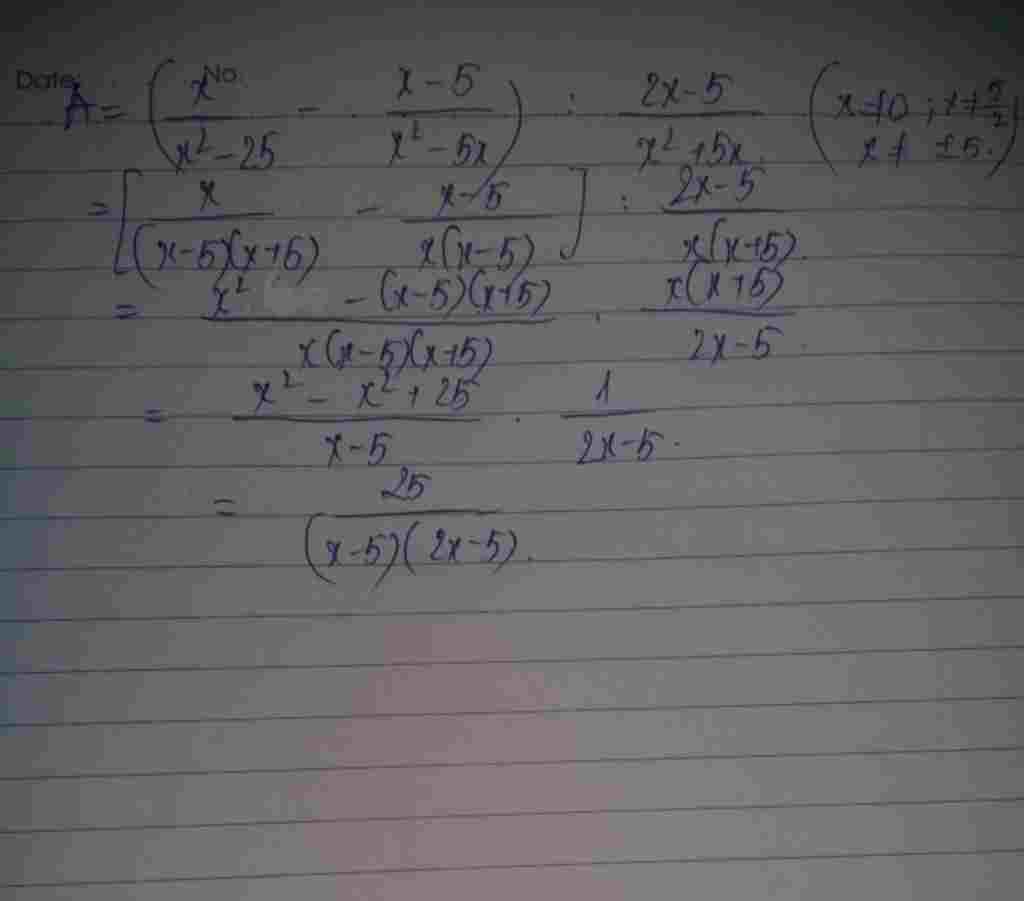 Date: No.
A = ( x / (x² - 25) - (x - 5) / (x² - 5x) ) : (2x - 5) / (x² + 5x) (x ≠ 0 ; x ≠ 5/2 x ≠ ±5.)
= [ x / ((x-5)(x+5)) - (x-5) / (x(x-5)) ] : (2x-5) / (x(x+5)).
= (x² - (x-5)(x+5)) / (x(x-5)(x+5)) . x(x+5) / (2x-5).
= (x² - x² + 25) / (x-5) . 1 / (2x-5).
= 25 / ((x-5)(2x-5)).